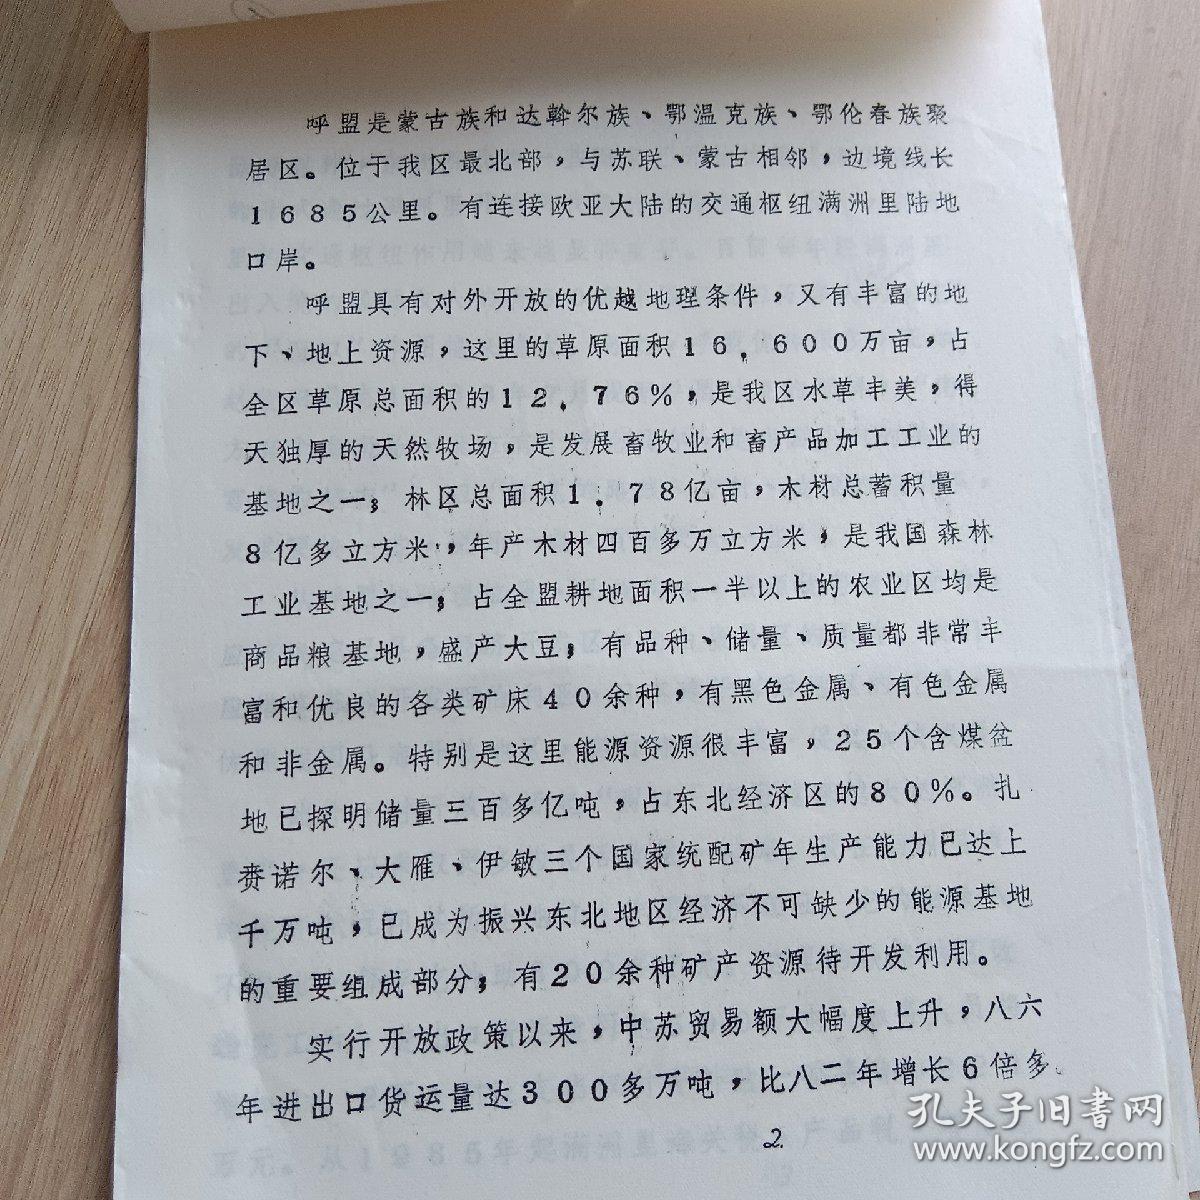 呼盟是蒙古族和达斡尔族、鄂温克族、鄂伦春族聚
居区。位于我区最北部，与苏联、蒙古相邻，边境线长
1685公里。有连接欧亚大陆的交通枢纽满洲里陆地
口岸。
呼盟具有对外开放的优越地理条件，又有丰富的地
下、地上资源，这里的草原面积16，600万亩，占
全区草原总面积的12．76%，是我区水草丰美，得
天独厚的天然牧场，是发展畜牧业和畜产品加工工业的
基地之一；林区总面积1．78亿亩，木材总蓄积量
8亿多立方米，年产木材四百多万立方米，是我国森林
工业基地之一；占全盟耕地面积一半以上的农业区均是
商品粮基地，盛产大豆；有品种、储量、质量都非常丰
富和优良的各类矿床40余种，有黑色金属、有色金属
和非金属。特别是这里能源资源很丰富，25个含煤盆
地已探明储量三百多亿吨，占东北经济区的80%。扎
赉诺尔、大雁、伊敏三个国家统配矿年生产能力已达上
千万吨，已成为振兴东北地区经济不可缺少的能源基地
的重要组成部分；有20余种矿产资源待开发利用。
实行开放政策以来，中苏贸易额大幅度上升，八六
年进出口货运量达300多万吨，比八二年增长6倍多。
2.
孔夫子旧书网
www.kongfz.com